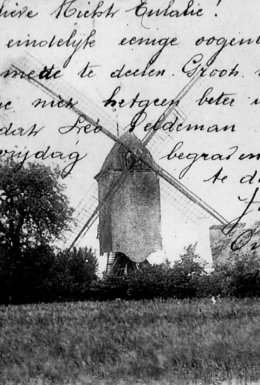 lieve Nicht Eulalie!
eindelijk eenige oogenb
mede te deelen. Groot
niet hetgeen beter
dat Leo Veldeman
vrijdag begraven
te d